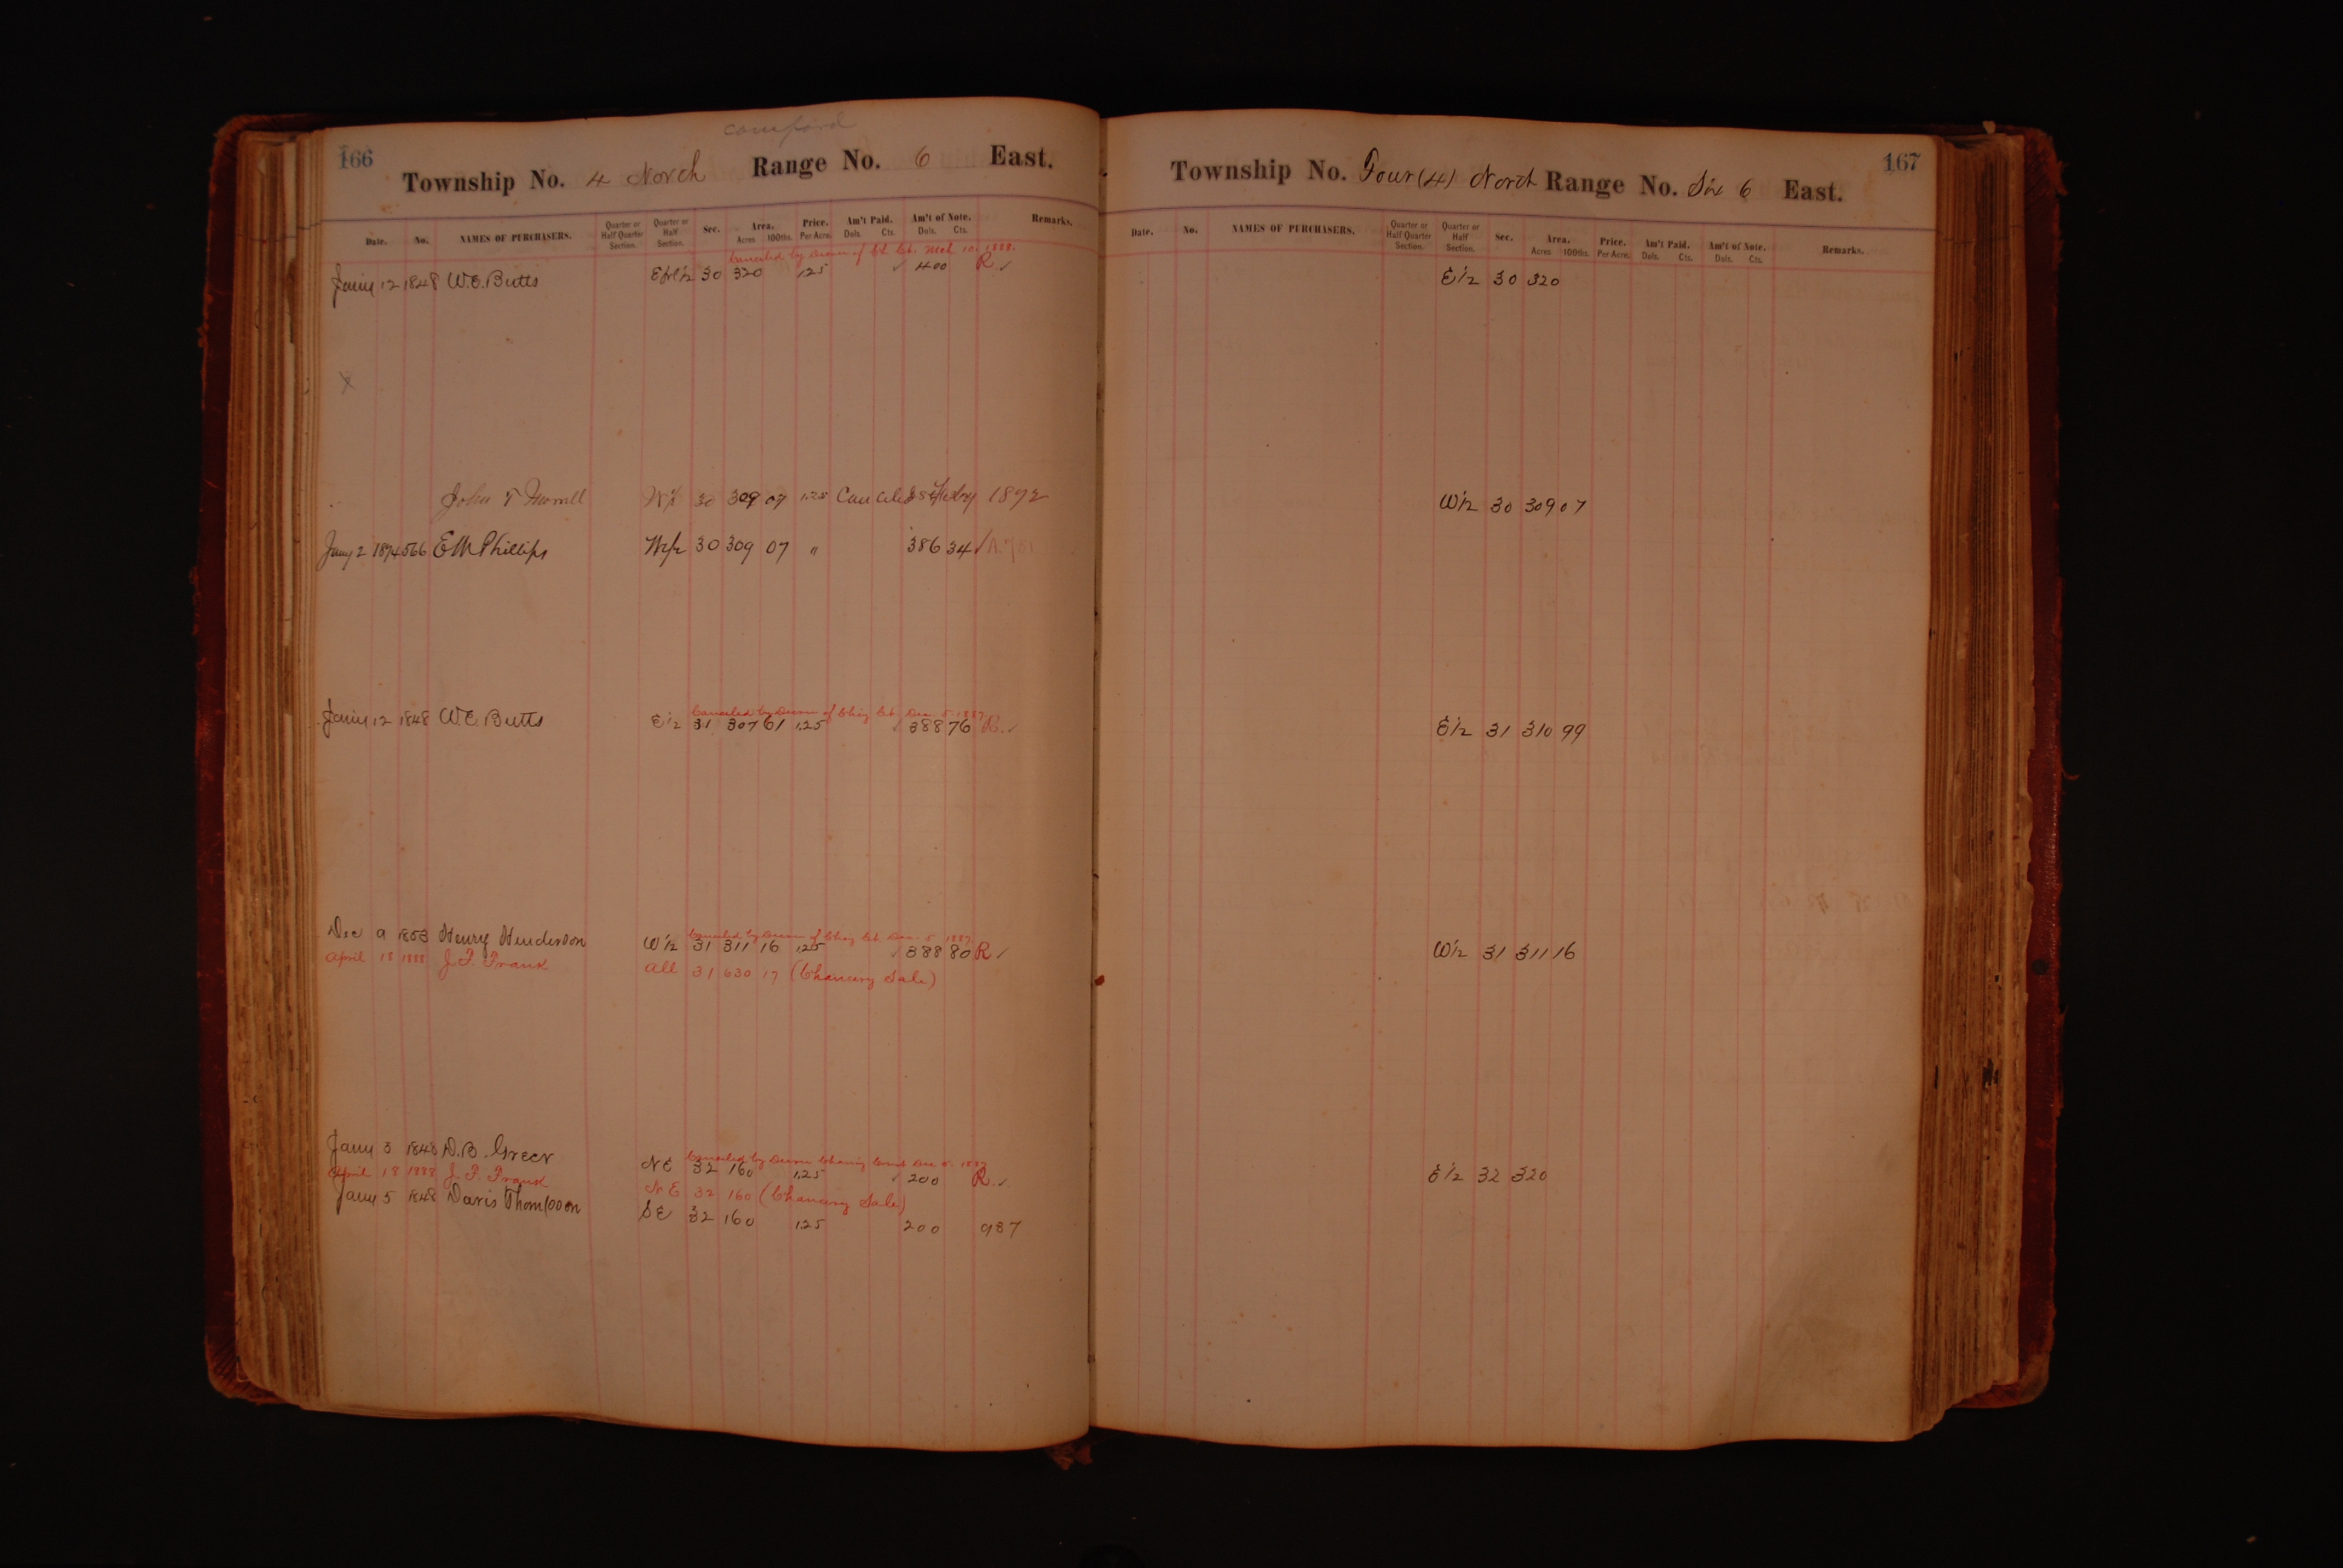 166
Township No. 4 North Range No. 6 East.
Date. No. NAMES OF PURCHASERS. Quarter or Half Quarter Section. Quarter or Half Section. Sec. Area. Acres 100ths. Price. Per Acre. Am't Paid. Dols. Cts. Am't of Note. Dols. Cts. Remarks.
Canceled by Decree of Ch. Ct. Mch. 10. 1888.
Jany 12 1848 W.E. Butts E 1/2 30 320 1.25 ✓ 400 R ✓
John T 30 309 07 1.25 Canceled 1892
Jany 2 1894 566 E M Phillips W 1/2 30 309 07 " 386 34 ✓
Canceled by Decree of Chancy Ct. Dec. 5 1887
Jany 12 1848 W E Butts E 1/2 31 307 61 1.25 ✓ 388 76 R ✓
Canceled by Decree of Chancy Ct. Dec. 5 1887
Dec 9 1853 Henry Henderson W 1/2 31 311 16 1.25 ✓ 388 80 R ✓
April 18 1888 J. F. Frank All 31 630 17 (Chancery Sale)
Canceled by Decree Chancy Court Dec 5. 1887
Jany 5 1848 D.B. Greer NE 32 160 1.25 ✓ 200 R ✓
April 18 1888 J. F. Frank NE 32 160 (Chancery Sale)
Jany 5 1848 Davis Thompson SE 32 160 1.25 200 987
167
Township No. Four (4) North Range No. Six 6 East.
Date. No. NAMES OF PURCHASERS. Quarter or Half Quarter Section. Quarter or Half Section. Sec. Area. Acres 100ths. Price. Per Acre. Am't Paid. Dols. Cts. Am't of Note. Dols. Cts. Remarks.
E 1/2 30 320
W 1/2 30 309 07
E 1/2 31 310 99
W 1/2 31 311 16
E 1/2 32 320